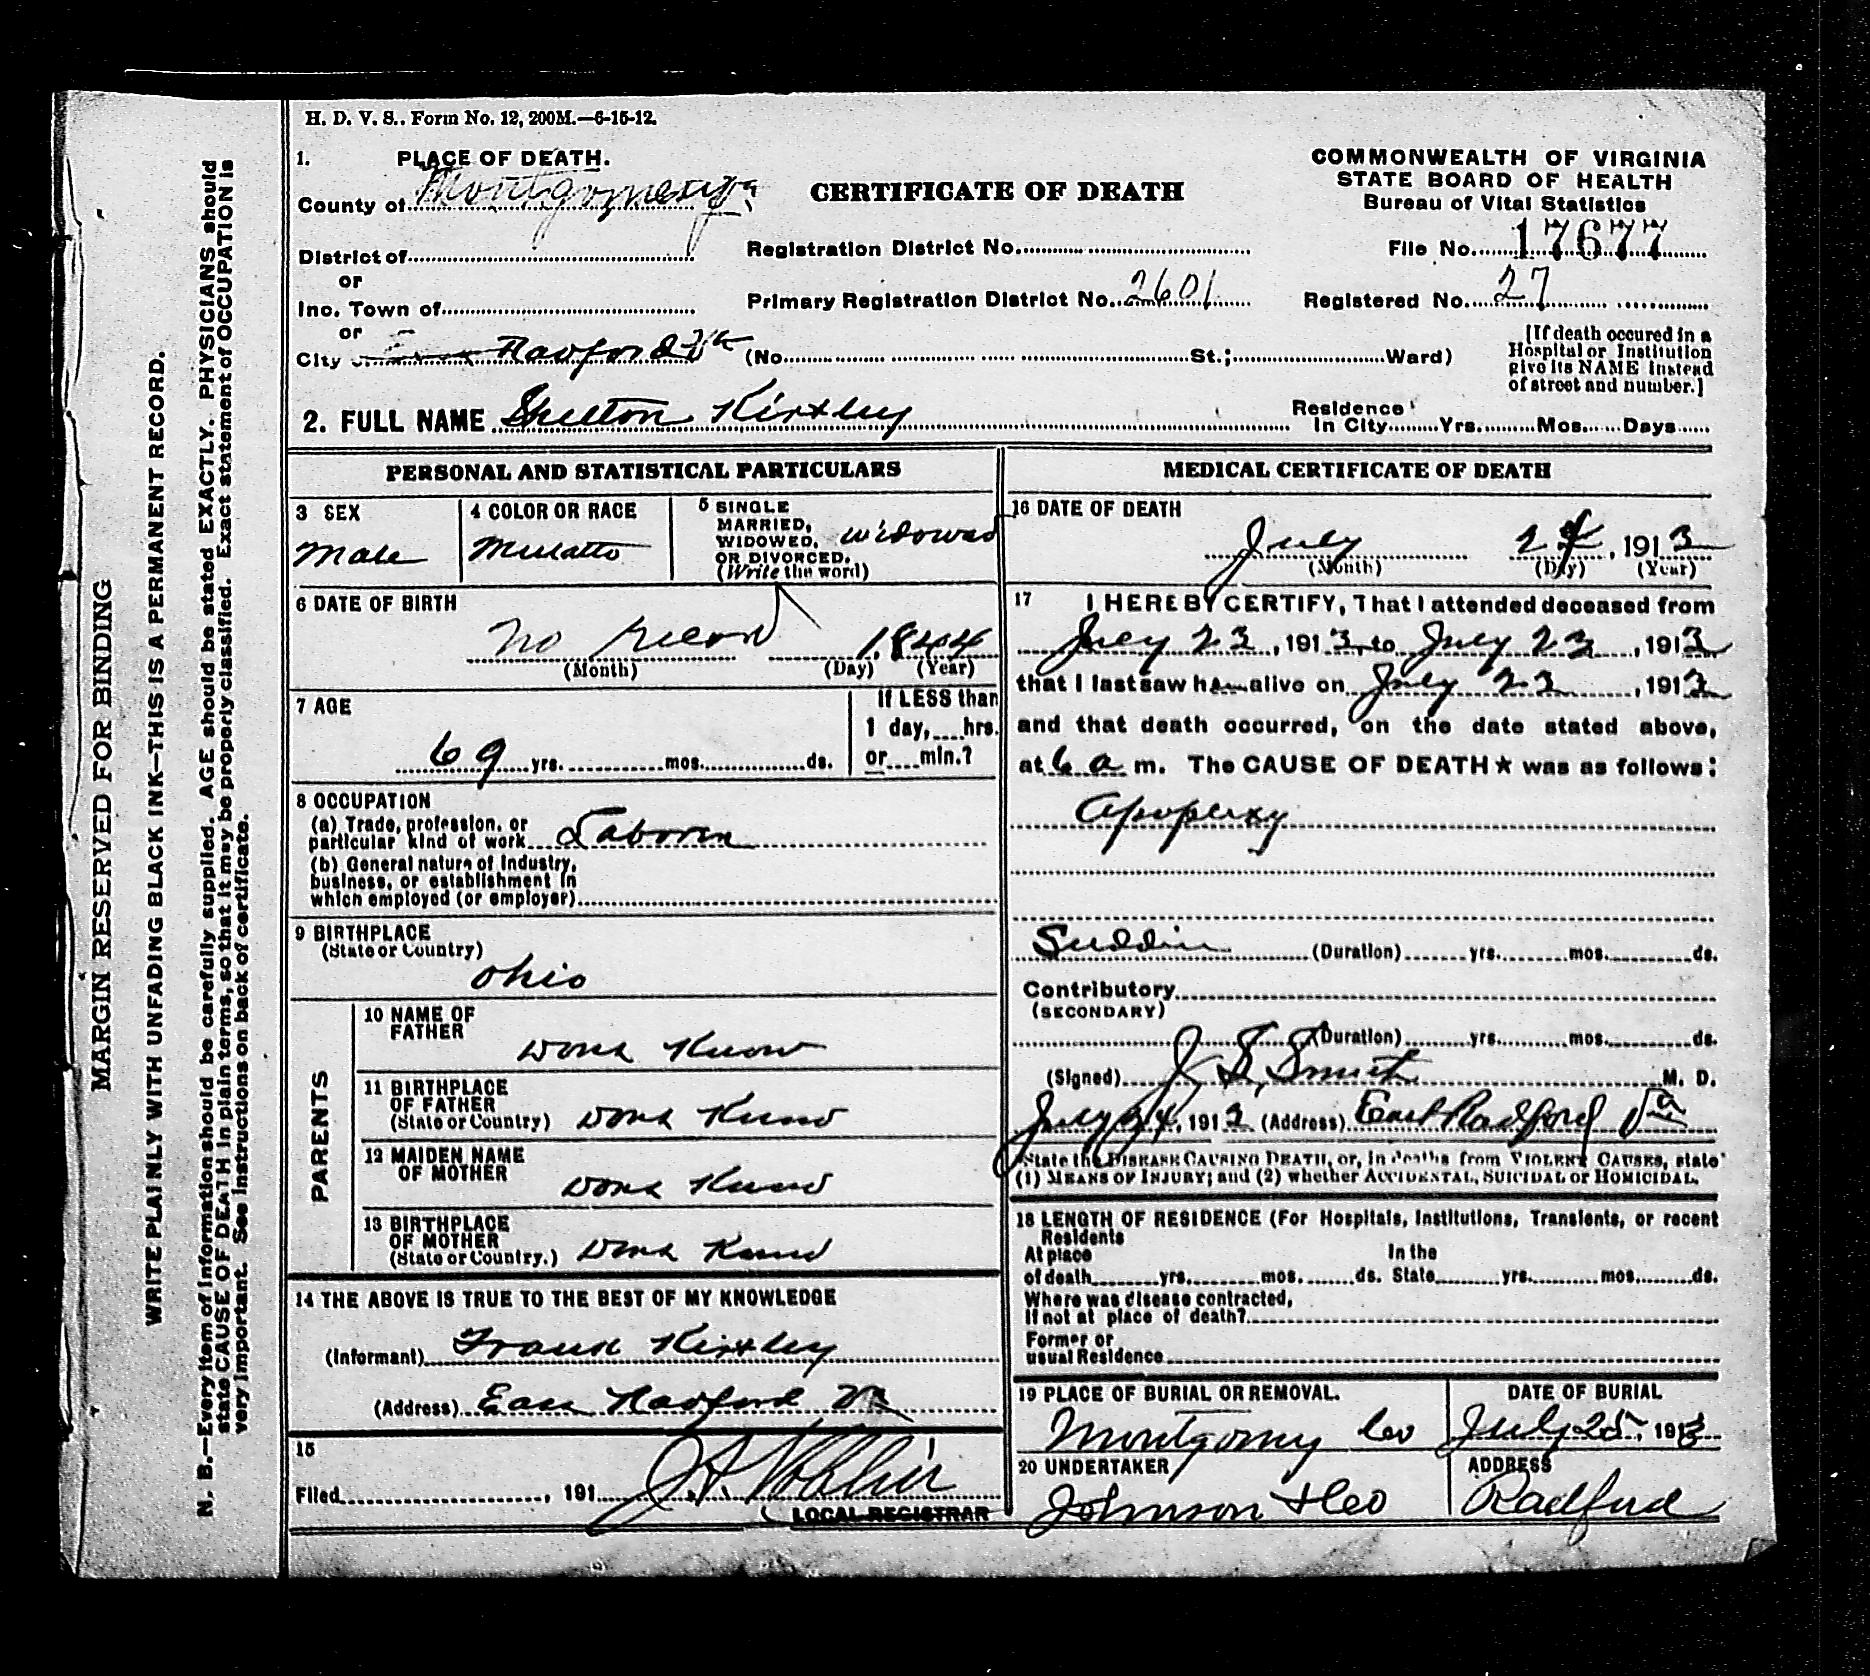 H. D. V. S.. Form No. 12, 200M.—6-15-12.
1. PLACE OF DEATH.
County of Montgomery Va
CERTIFICATE OF DEATH
COMMONWEALTH OF VIRGINIA
STATE BOARD OF HEALTH
Bureau of Vital Statistics
District of
Registration District No.
File No. 17677
or
Inc. Town of
Primary Registration District No. 2601
Registered No. 27
or
City Radford Va (No. St.; Ward)
[If death occured in a
Hospital or Institution
give its NAME instead
of street and number.]
2. FULL NAME Shelton Kirtley
Residence
In City Yrs. Mos. Days
PERSONAL AND STATISTICAL PARTICULARS
3 SEX
Male
4 COLOR OR RACE
Mulatto
5 SINGLE
MARRIED,
WIDOWED,
OR DIVORCED.
(Write the word)
Widowed
6 DATE OF BIRTH
No Record 1844
(Month) (Day) (Year)
7 AGE
69 yrs. mos. ds.
If LESS than
1 day, hrs.
or min.?
8 OCCUPATION
(a) Trade, profession, or
particular kind of work Laborer
(b) General nature of Industry,
business, or establishment in
which employed (or employer)
9 BIRTHPLACE
(State or Country)
Ohio
PARENTS
10 NAME OF
FATHER
Dont Know
11 BIRTHPLACE
OF FATHER
(State or Country) Dont Know
12 MAIDEN NAME
OF MOTHER
Dont Know
13 BIRTHPLACE
OF MOTHER
(State or Country.) Dont Know
14 THE ABOVE IS TRUE TO THE BEST OF MY KNOWLEDGE
(Informant) Frank Kirtley
(Address) East Radford Va
15
Filed , 191
LOCAL REGISTRAR
MEDICAL CERTIFICATE OF DEATH
16 DATE OF DEATH
July 24, 1913
(Month) (Day) (Year)
17 I HEREBY CERTIFY, That I attended deceased from
July 23, 1913, to July 23, 1913
that I last saw him alive on July 23, 1913
and that death occurred, on the date stated above,
at 6 a m. The CAUSE OF DEATH★ was as follows:
Apoplexy
Suddin (Duration) yrs. mos. ds.
Contributory
(SECONDARY)
(Duration) yrs. mos. ds.
(Signed) J. S. Smith M. D.
July 24, 1913 (Address) East Radford Va
State the DISEASE CAUSING DEATH, or, in deaths from VIOLENT CAUSES, state
(1) MEANS OF INJURY; and (2) whether ACCIDENTAL, SUICIDAL or HOMICIDAL.
18 LENGTH OF RESIDENCE (For Hospitals, Institutions, Transients, or recent
Residents
At place
of death yrs. mos. ds.
In the
State yrs. mos. ds.
Where was disease contracted,
If not at place of death?
Former or
usual Residence
19 PLACE OF BURIAL OR REMOVAL.
Montgomy Co
DATE OF BURIAL
July 25, 1913
20 UNDERTAKER
Johnson & Co
ADDRESS
Radford
MARGIN RESERVED FOR BINDING
WRITE PLAINLY WITH UNFADING BLACK INK—THIS IS A PERMANENT RECORD.
N. B.—Every item of information should be carefully supplied. AGE should be stated EXACTLY. PHYSICIANS should
state CAUSE OF DEATH in plain terms, so that it may be properly classified. Exact statement of OCCUPATION is
very important. See instructions on back of certificate.